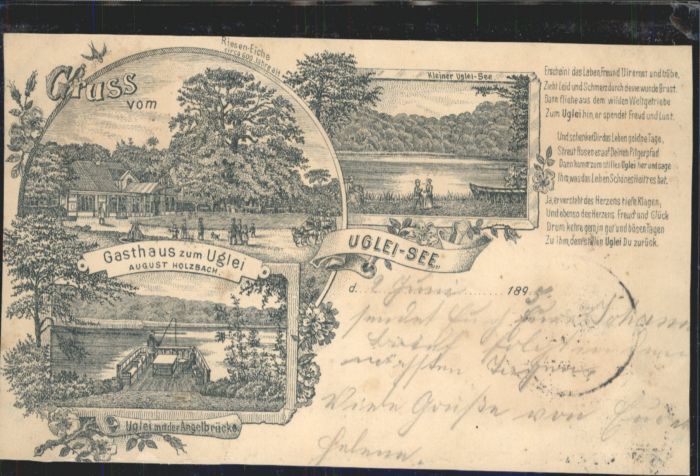 Gruss
vom
Riesen-Eiche
circa 600 Jahre alt
Gasthaus zum Uglei
AUGUST HOLZBACH.
Kleiner Uglei-See.
UGLEI-SEE,
Uglei mit der Angelbrücke
Erscheint das Leben, Freund Dir ernst und trübe,
Zieht Leid und Schmerz durch deine wunde Brust,
Dann fliehe aus dem wilden Weltgetriebe
Zum Uglei hin, er spendet Freud und Lust.
Und schenket Dir das Leben goldne Tage,
Streut Rosen es auf Deinen Pilgerpfad
Dann komm zum stillen Uglei her und sage
Ihm, was das Leben Schönes Heitres hat.
Ja, er versteht des Herzens tiefe Klagen,
Und ebenso des Herzens Freud und Glück
Drum kehre gern in gut und bösen Tagen
Zu ihm, dem stillen Uglei Du zurück.
d. Juni 1895
sendet Euch
Viele Grüße von
Helene.